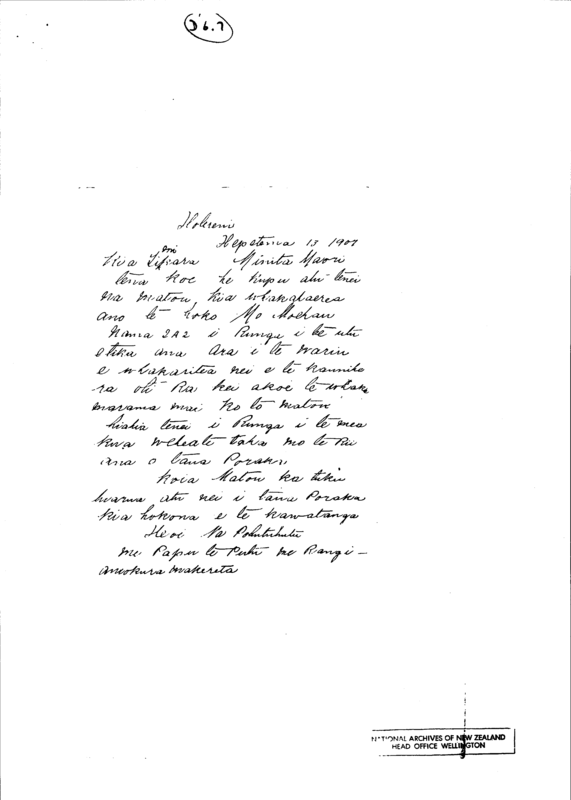 J 6.7
Hepetema 13 1907
Kia Timi Minita Maori
tena koe he kupu atu tenei
na matou, kia whakahaerea
ano te hoko Mo Moehau
Nama 2A2 i Runga i te utu
etika ana Ara i te wariu
e whakaritea nei e te
ra oti Ra kei akoe te whaka
marama mai ko to matou
hiahia tenei i Runga i te mea
kua weheate taha mo te
ana o taua Poraka
Koia Matou ka tuku
atu nei i taua Poraka
kia hokona e te kawatanga
Heoi Na Pohutuhutu
me Papu te me Rangi -
Makereta
NATIONAL ARCHIVES OF NEW ZEALAND
HEAD OFFICE WELLINGTON